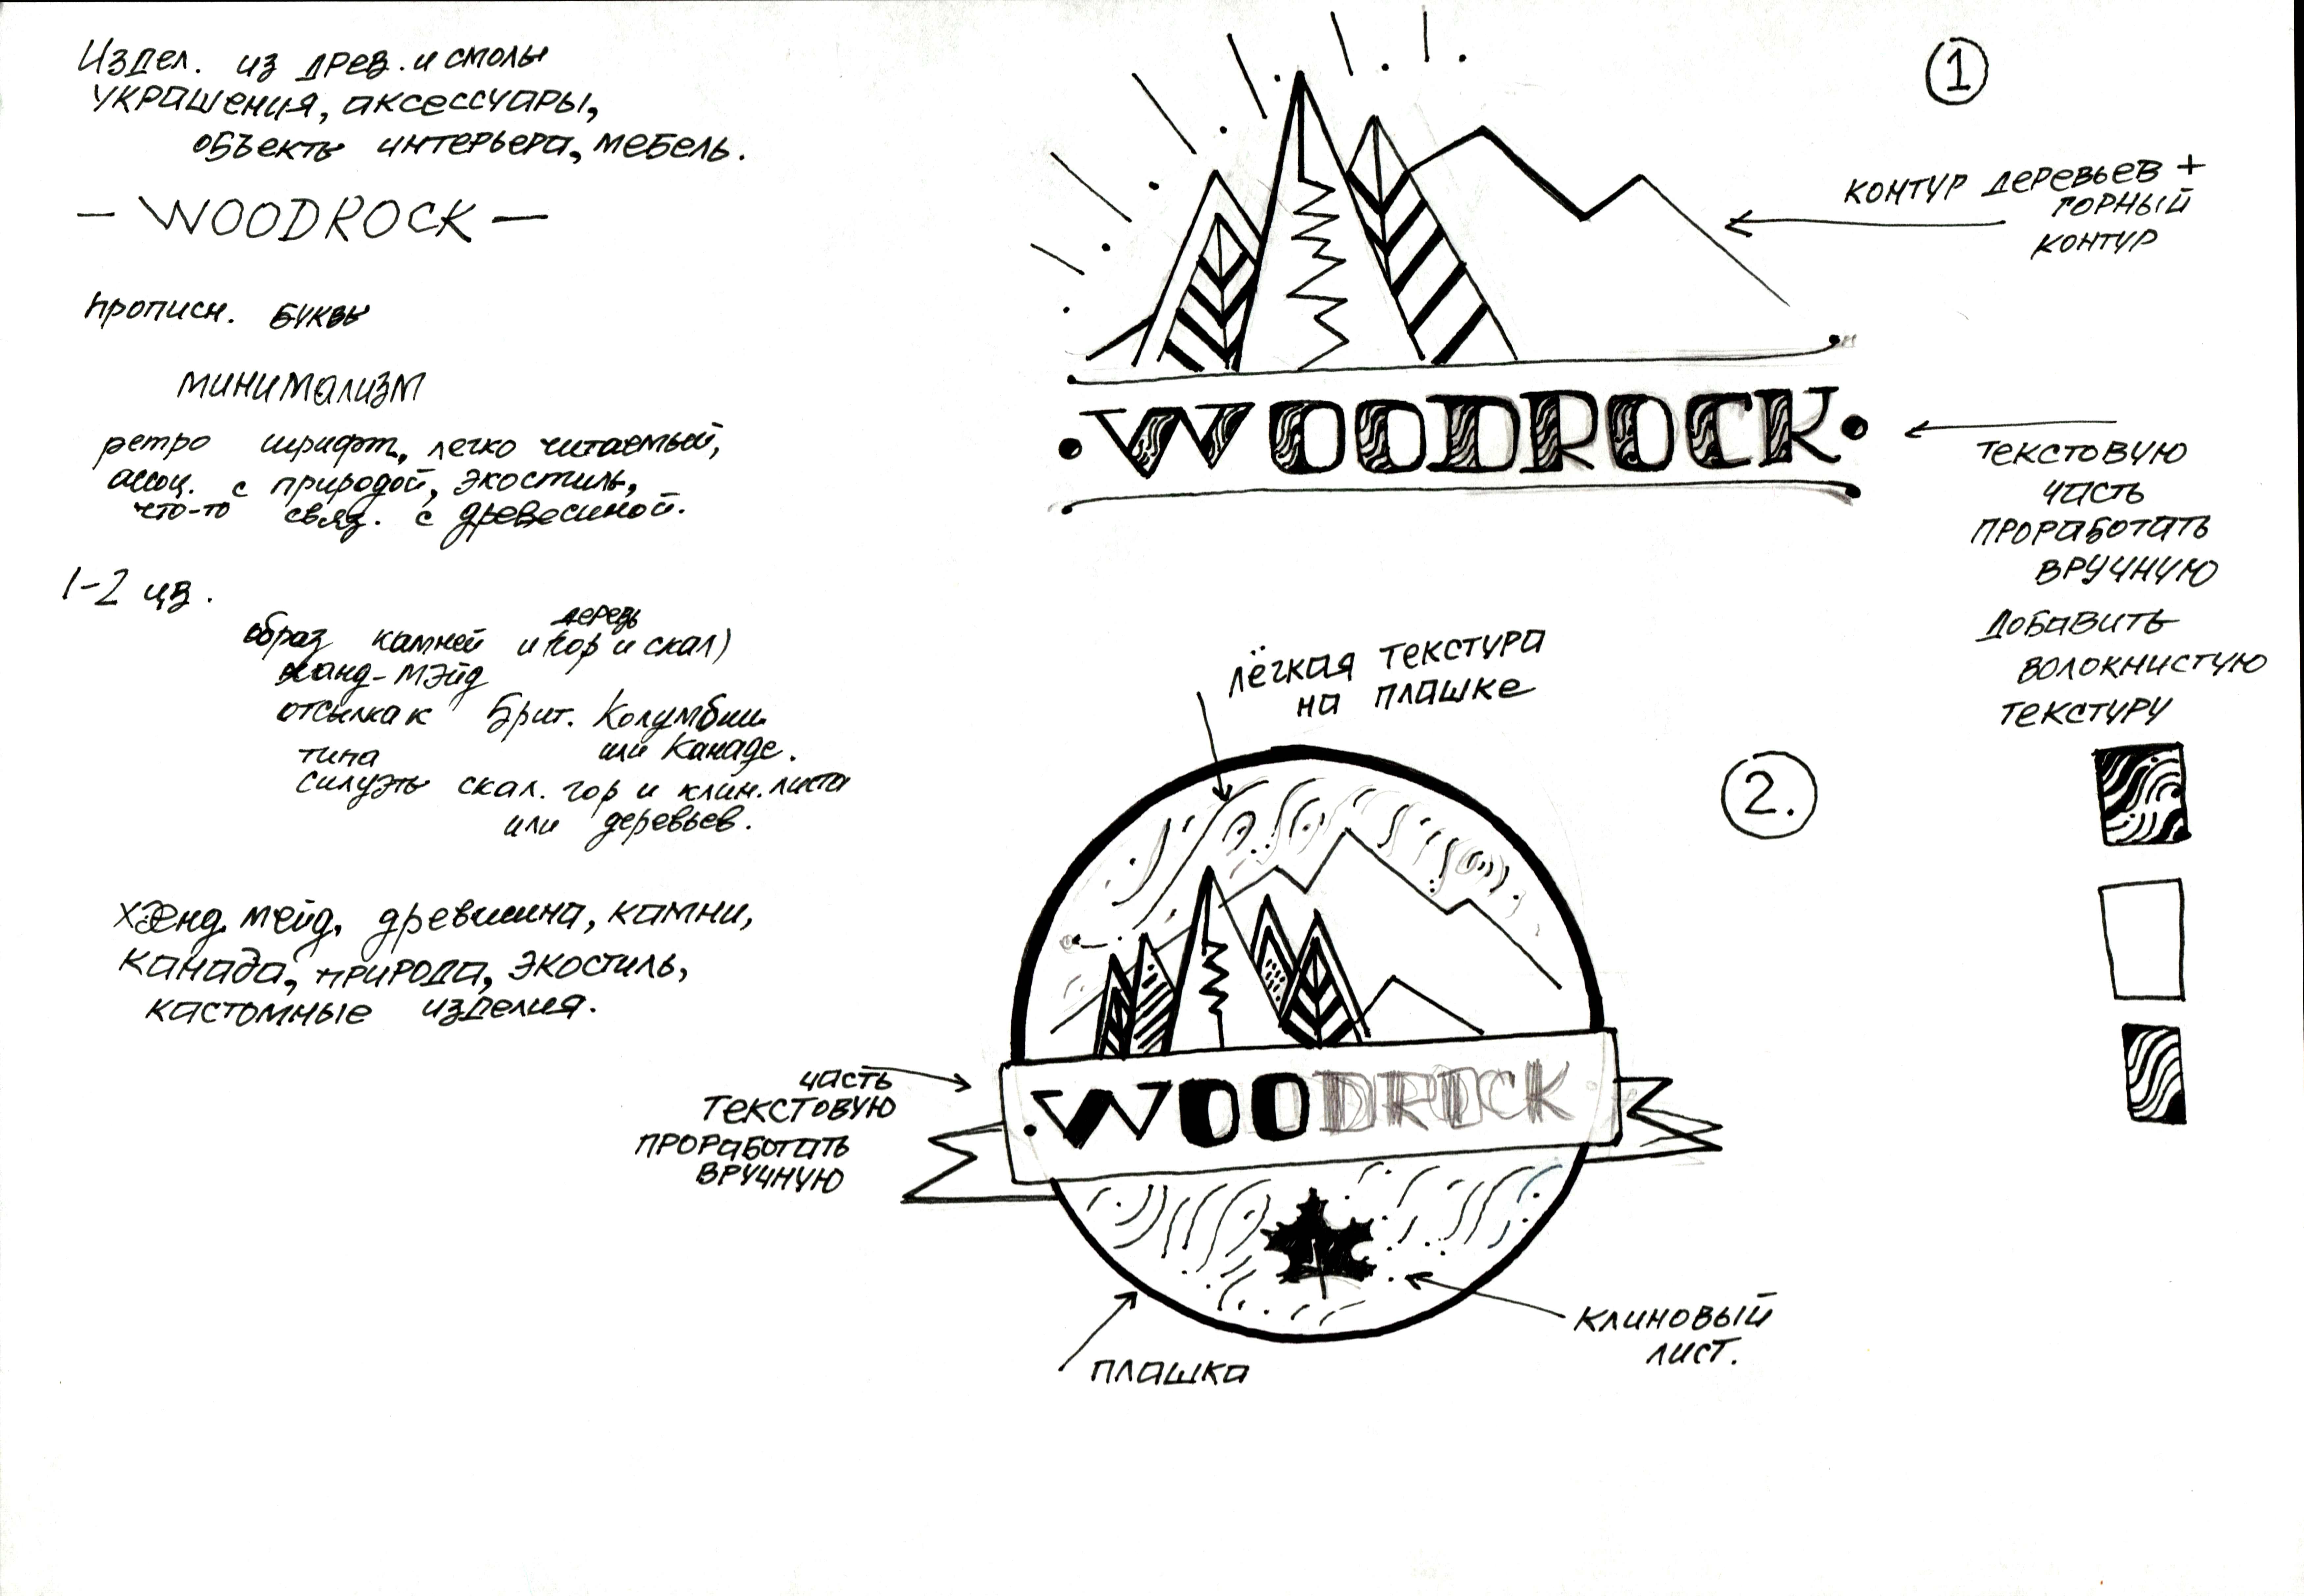 Издел. из древ. и смолы
украшения, аксессуары,
объекты интерьера, мебель.
— WOODROCK —
прописн. буквы
минимализм
ретро шрифт, легко читаемый,
ассоц. с природой, экостиль,
что-то связ. с древесиной.
1-2 цв.
деревь
образ камней и гор и скал)
ханд-мэйд
отсылка к Брит. Колумбии
типа или Канаде.
силуэты скал. гор и клин. листа
или деревьев.
хэнд мейд, древисина, камни,
Канада, природа, экостиль,
кастомные изделия.
1
контур деревьев +
горный
контур
•WOODROCK•
текстовую
часть
проработать
вручную
добавить
волокнистую
текстуру
лёгкая текстура
на плашке
2.
часть
текстовую
проработать
вручную
•WOODROCK
клиновый
лист.
плашка